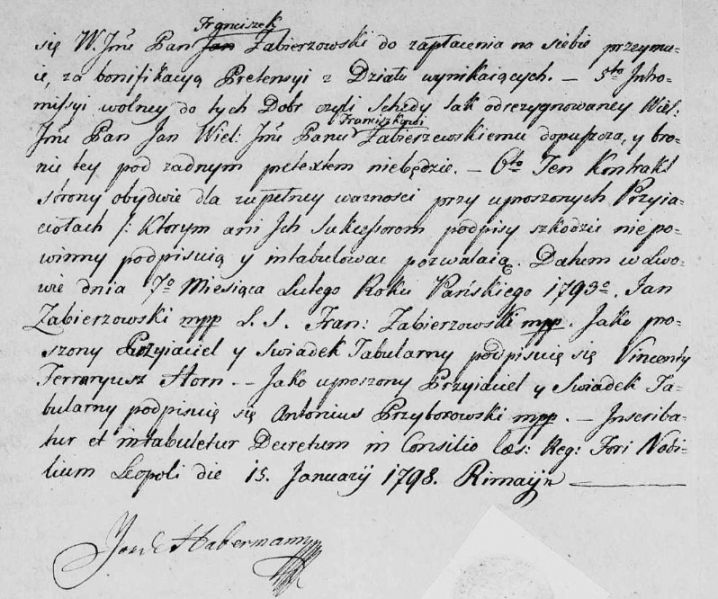 Franciszek
się W. Jmć Pan Jan Zabierzowski do zapłacenia na siebie przeymu-
ie, za bonifikacyą Pretensyi z Działu wynikaiących. — 5to Intro-
missyi wolney do tych Dobr czyli Schedy iak odrezygnowaney Wiel:
Franciszkowi
Jmć Pan Jan Wiel: Jmć Panu Zabierzewskiemu dopuszcza, y bro-
nić iey pod żadnym pretextem niebędzie. — 6to Ten Kontrakt
strony obydwie dla zupełney ważności przy uproszonych Przyia-
ciołach /: Ktorym ani Ich Sukcessorom podpisy szkodzić niepo-
winny podpisuią y intabulować pozwalaią. Datum w Lwo-
wie dnia 7o Miesiąca Lutego Roku Pańskiego 1793o. Jan
Zabierzowski mpp L. S. Fran: Zabierzowski mpp. Jako pro-
szony Przyiaciel y Swiadek Tabularny podpisuię się Vincenty
Ferraryusz Horn. — Jako uproszony Przyiaciel y Swiadek Ta-
bularny podpisuię się Antonius Przyborowski mpp. — Inscriba-
tur et intabuletur Decretum in Consilio Cæs: Reg: Fori Nobi-
lium Leopoli die 15. January 1798. 
Habermann